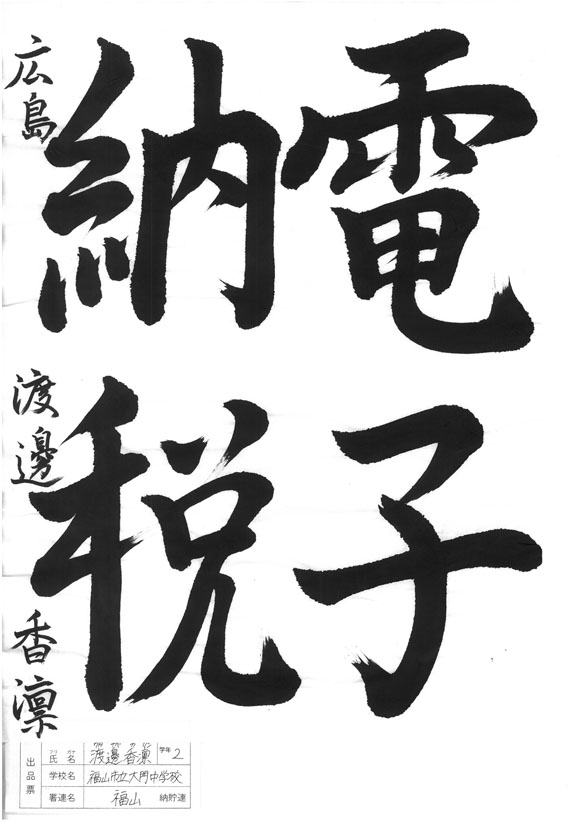 電子
納税
広島 渡邊 香凛
出品票
フリ ガナ
氏 名 渡邊香凛 学年 2
学校名 福山市立大門中学校
署連名 福山 納貯連